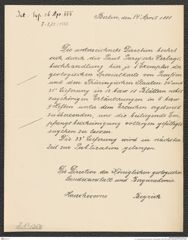 Berlin, den 14 April 1888
Die unterzeichnete Direction beehrt
sich durch die Paul Parey'sche Verlags-
buchhandlung hier 3 Exemplare der
geologischen Specialkarte von Preußen
und den Thüringischen Staaten
35te Lieferung in Blättern nebst
zugehörigen Erläuterungen in
Heften unter dem Ersuchen ergebenst
zu übersenden, uns die beiliegende Em-
pfangsbescheinigung vollzogen gefälligst
zugehen zu lassen.
Die Lieferung wird in nächster
Zeit zur Publication gelangen.
Die Direction der Königlichen geologischen
Landesanstalt und Bergakademie
Hauchecorne Beyrich